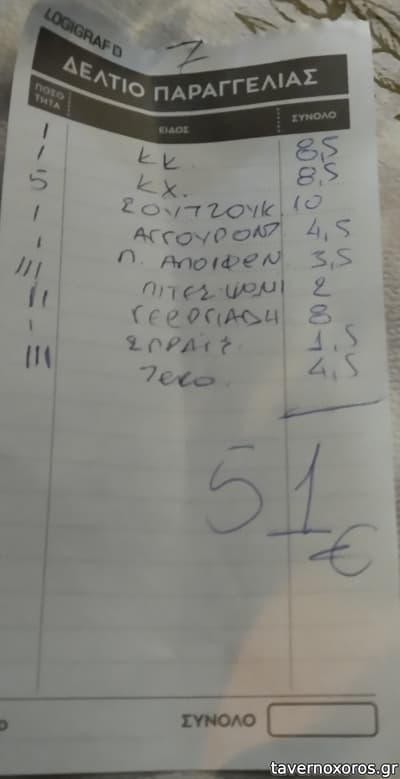 LOGIGRAF D
7
ΔΕΛΤΙΟ ΠΑΡΑΓΓΕΛΙΑΣ
ΠΟΣΟ ΤΗΤΑ ΕΙΔΟΣ ΣΥΝΟΛΟ
1 ΚΚ. 8,5
1 ΚΧ. 8,5
5 ΣΟΥΤΖΟΥΚ. 10
1 ΑΓΓΟΥΡΟΝΤ 4,5
1 Π. ΑΠΟΙΦΕΝ 3,5
III ΠΙΤΕΣ ΨΩΜΙ 2
II 8
1 ΣΠΡΑΙΤ 1,5
III ZERO. 4,5
51
€
ΣΥΝΟΛΟ
tavernoxoros.gr